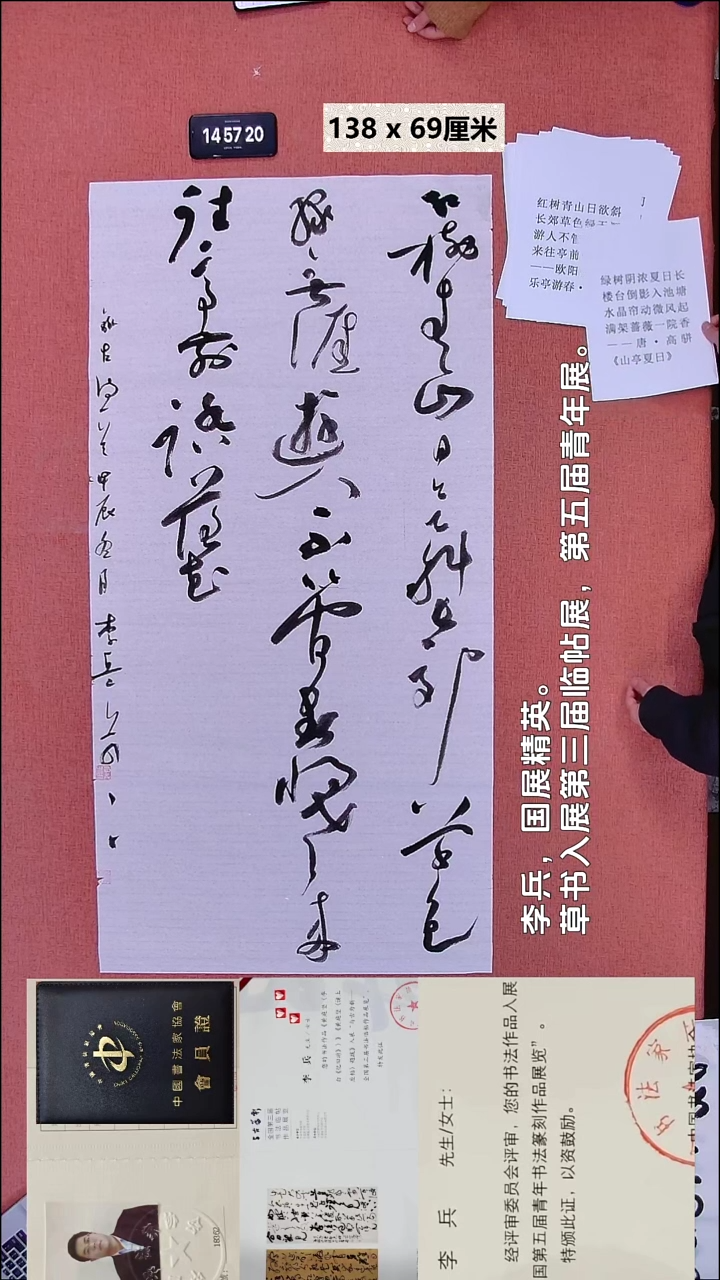 14 57 20
138 x 69厘米
紅樹青山日欲斜長郊草色
綠無涯遊人不管春將老来
往亭前踏落花
甲辰冬月 李兵
红树青山日欲斜
长郊草色绿
游人不
来往亭前
——欧阳
乐亭游春·
绿树阴浓夏日长
楼台倒影入池塘
水晶帘动微风起
满架蔷薇一院香
——唐·高骈
《山亭夏日》
李兵，国展精英。
草书入展第三届临帖展，第五届青年展。
中國書法家協會
會員證
李 兵
李 兵 先生/女士：
经评审委员会评审，您的书法作品入展
国第五届青年书法篆刻作品展览”。
特颁此证，以资鼓励。